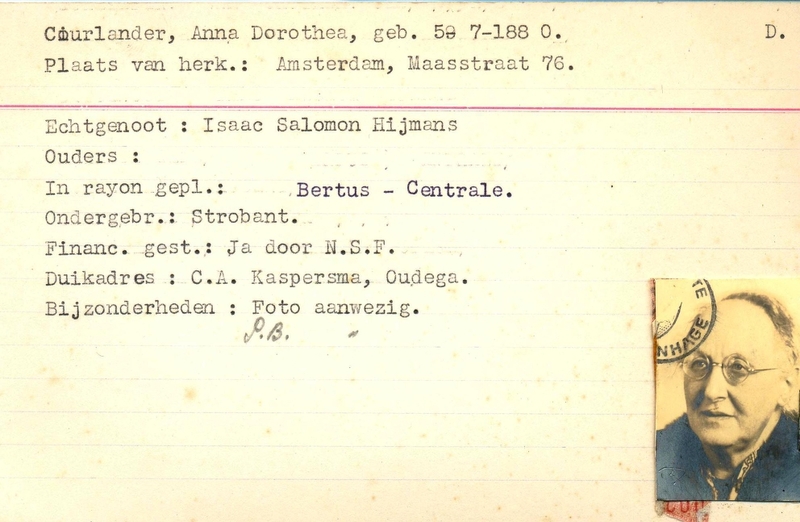 Courlander, Anna Dorothea, geb. 7-188 0. D.
Plaats van herk.: Amsterdam, Maasstraat 76.
Echtgenoot : Isaac Salomon Hijmans
Ouders :
In rayon gepl.: Bertus - Centrale.
Ondergebr.: Strobant.
Financ. gest.: Ja door N.S.F.
Duikadres : C.A. Kaspersma, Oudega.
Bijzonderheden : Foto aanwezig.
P.B. "
NHAGE